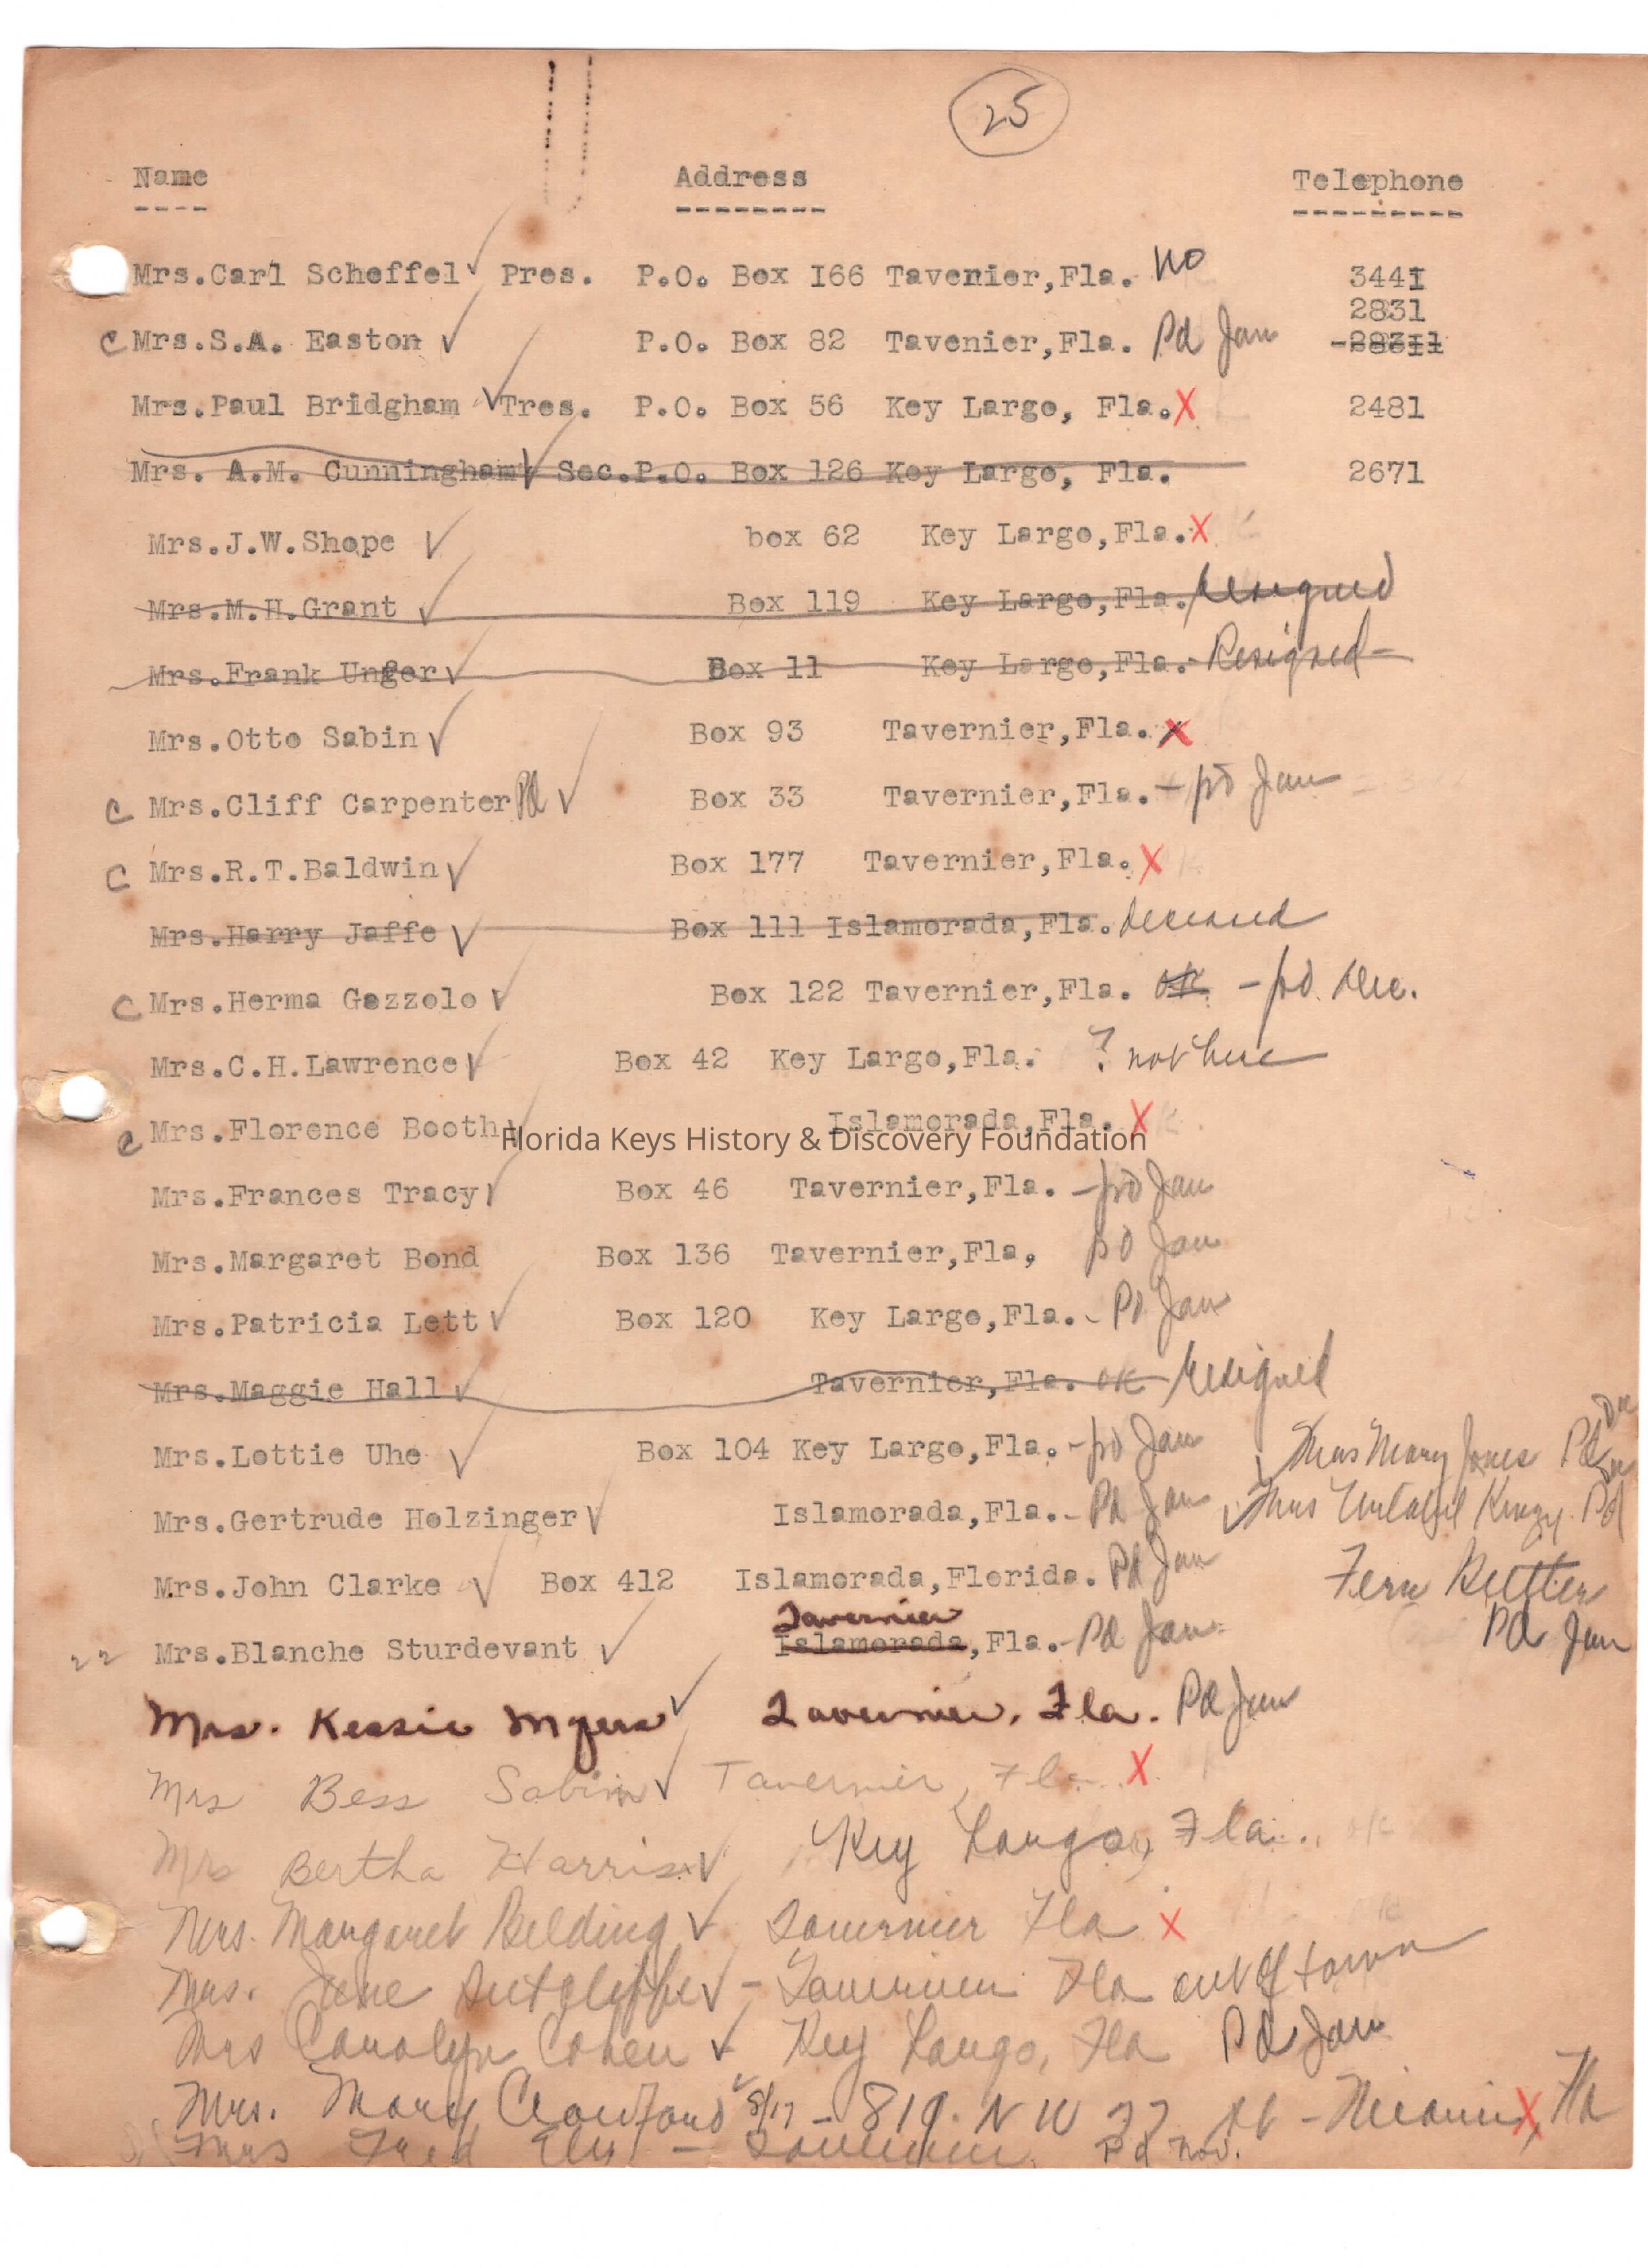 25
Name Address Telephone
Mrs.Carl Scheffel ✓ Pres. P.O. Box I66 Tavenier,Fla. NO 344I
2831
C Mrs.S.A. Easton ✓ P.O. Box 82 Tavenier,Fla. Pd Jan
Mrs.Paul Bridgham ✓ Tres. P.O. Box 56 Key Largo, Fla. X 2481
Mrs. A.M. Cunningham ✓ Sec.P.O. Box 126 Key Largo, Fla. 2671
Mrs.J.W.Shope ✓ box 62 Key Largo,Fla. X
Mrs.M.H.Grant ✓ Box 119 Key Largo,Fla. Resigned
Mrs.Frank Unger ✓ Box 11 Key Largo,Fla. - Resigned -
Mrs.Otto Sabin ✓ Box 93 Tavernier,Fla. X
C Mrs.Cliff Carpenter Pd ✓ Box 33 Tavernier,Fla. - pd Jan
C Mrs.R.T.Baldwin ✓ Box 177 Tavernier,Fla. X
Mrs.Harry Jaffe ✓ Box 111 Islamorada,Fla. deceased
C Mrs.Herma Gozzolo ✓ Box 122 Tavernier,Fla. OK - pd. Dec.
Mrs.C.H.Lawrence ✓ Box 42 Key Largo,Fla. ? not here
C Mrs.Florence Booth ✓ Islamorada,Fla. X
Florida Keys History & Discovery Foundation
Mrs.Frances Tracy ✓ Box 46 Tavernier,Fla. - pd Jan
Mrs.Margaret Bond Box 136 Tavernier,Fla, pd Jan
Mrs.Patricia Lott ✓ Box 120 Key Largo,Fla. - Pd Jan
Mrs.Maggie Hall ✓ Tavernier,Fla. OK Resigned
Mrs.Lottie Uhe ✓ Box 104 Key Largo,Fla. - pd Jan
✓ Mrs Mary Jones Pd
Mrs.Gertrude Holzinger ✓ Islamorada,Fla. - Pd Jan
✓ Mrs Pd
Mrs.John Clarke ✓ Box 412 Islamorada,Florida. Pd Jan
Fern
Pd Jan
Tavernier
22 Mrs.Blanche Sturdevant ✓ Islamorada,Fla. - Pd Jan.
Mrs. Kessie Myers ✓ Tavernier, Fla. Pd Jan
Mrs Bess Sabin ✓ Tavernier, Fla. X
Mrs Bertha Harris ✓ Key Largo, Fla. ok
Mrs. Margaret Belding ✓ Tavernier Fla X
Mrs. June Sutcliffe ✓ - Tavernier Fla out of town
Mrs Carolyn Cohen ✓ Key Largo, Fla Pd Jan
Mrs. Mary Crawford ✓ 8/17 - 819. N W 27 - Miami X Fla
Mrs Fred - Tavernier. Pd Nov.